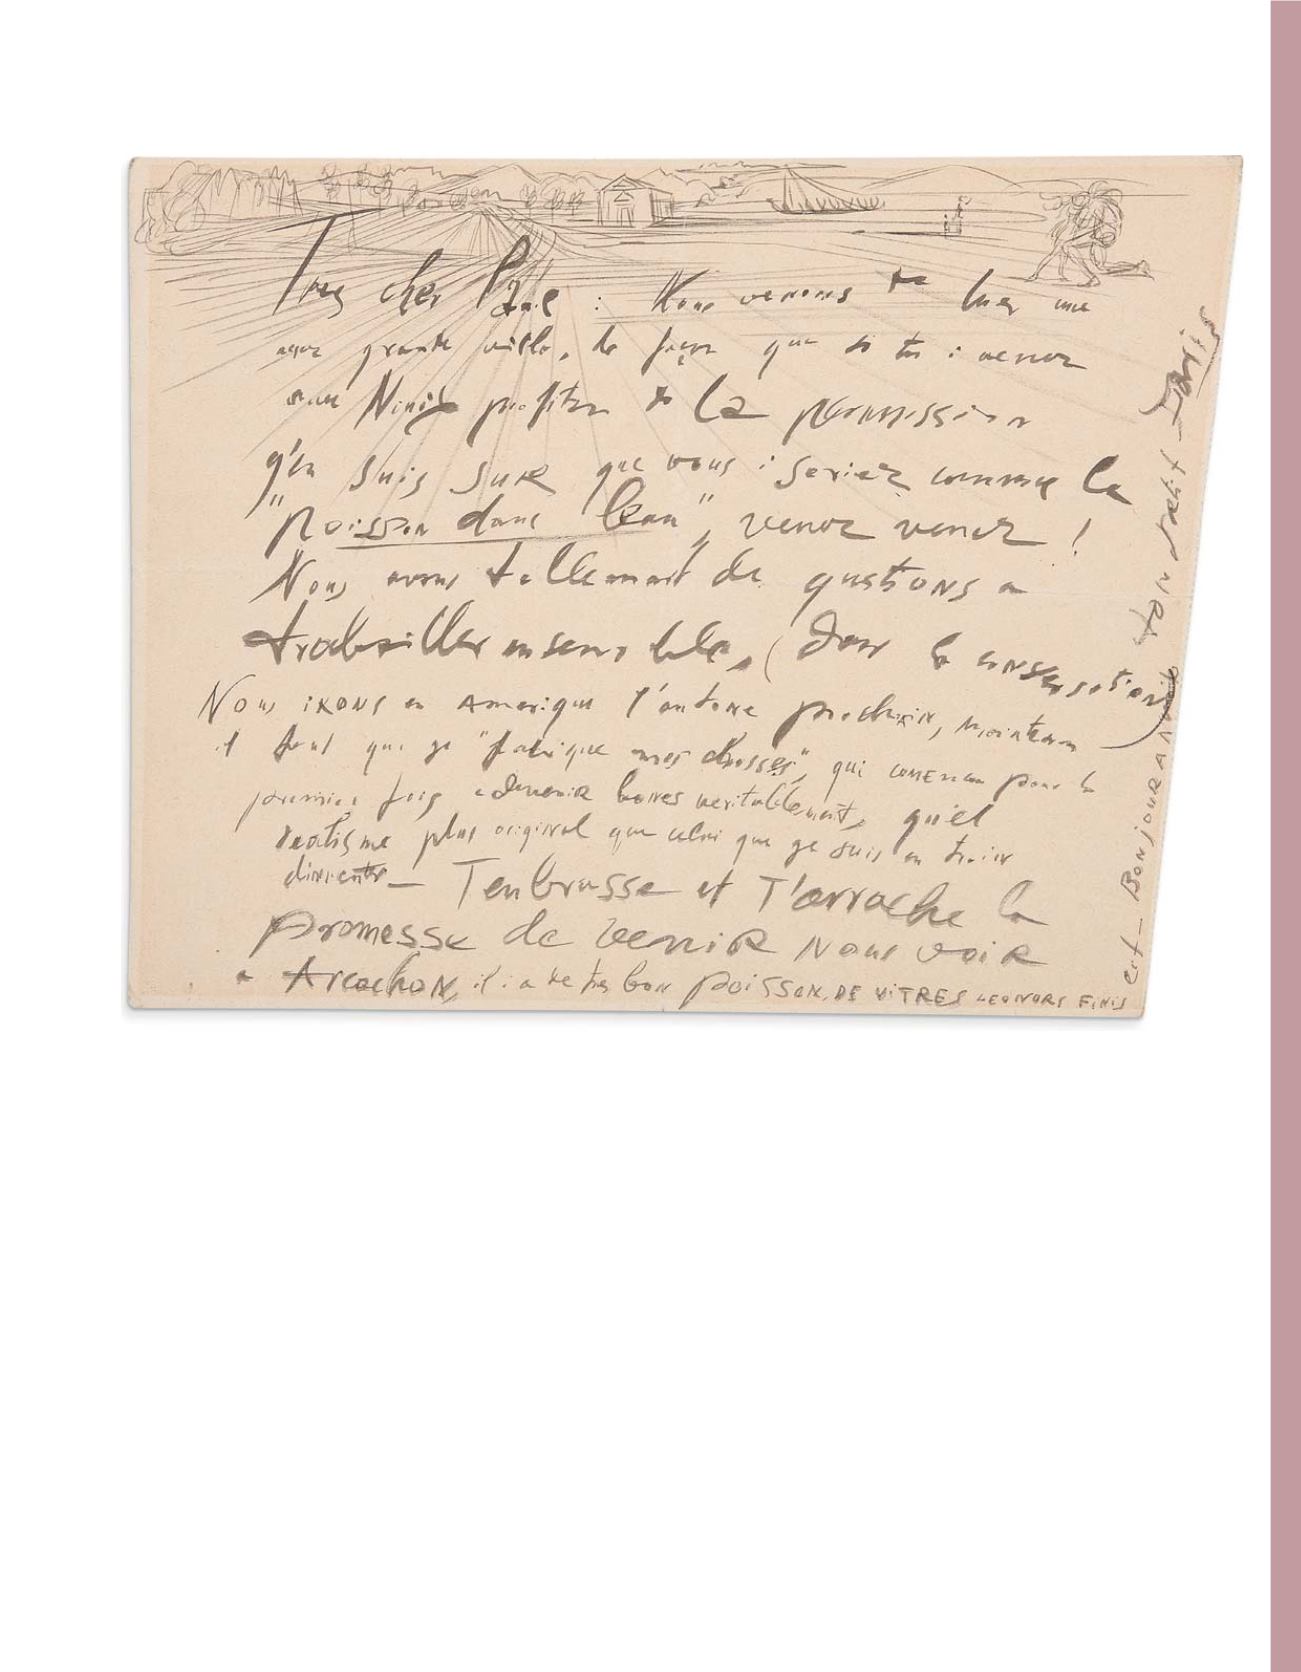 Tres cher Paul : Nous venons de luer une
asez grande villa, de façon que si tu i venez
avec Nuch profiter de la permission
g'en suis sure que vous i seriez comme le
"poisson dans l'eau", venez venez !
Nous avons tellemant de questions a
trabailler ensemble, (dans la conversation)
Nous irons en Amerique l'autone prochain, maintenan
il faut que ge "fabrique mes choses", qui comencen pour la
premier fois a devenir bones veritablemant, quel
realisme plus original que celui que ge suis en train
dinventer — Tenbrasse et T'arrache la
promesse de venir Nous voir
a Arcachon, il i a de tres bon poisson, DE VITRES LEONORS FINIS
ect — BONJOUR A NUCH ton petit Dalis